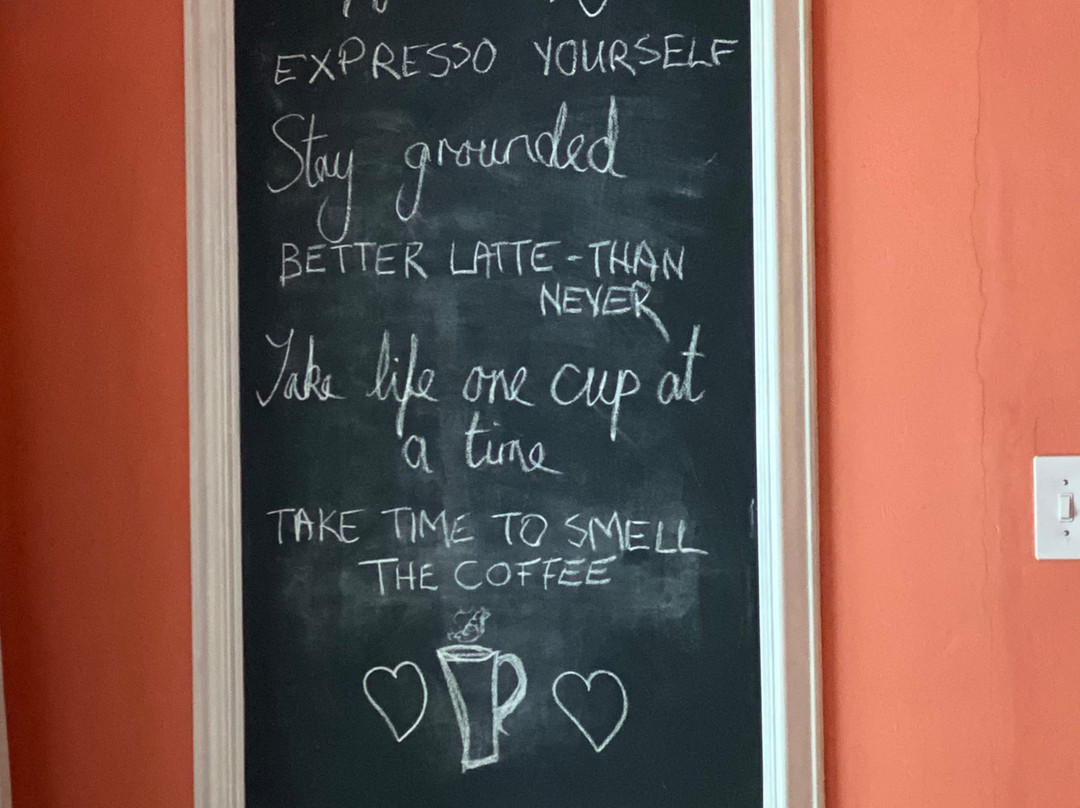 EXPRESSO YOURSELF
Stay grounded
BETTER LATTE - THAN
NEVER
Take life one cup at
a time
TAKE TIME TO SMELL
THE COFFEE